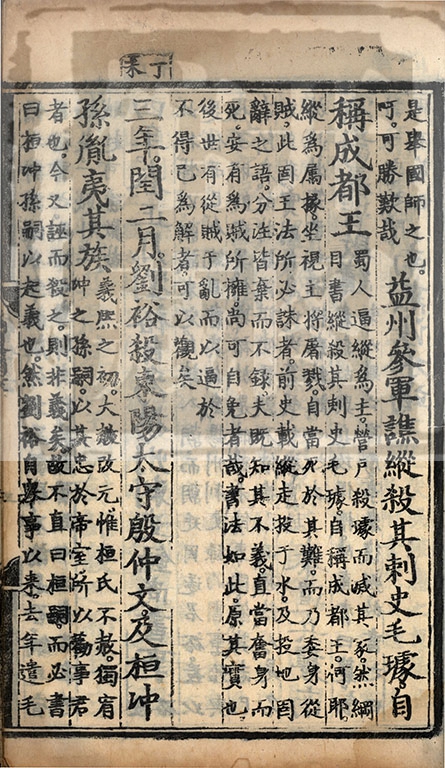 丁未
是舉國師之也
吁可勝歎哉
益州參軍譙縱殺其刺史毛璩自
稱成都王
蜀人逼縱為主營戶殺璩而滅其家然綱
目書縱殺其刺史毛璩自稱成都王何耶
縱為屬掾坐視主將屠戮自當死於其難而乃委身從
賊此固王法所必誅者前史載縱走投于水及投地固
辭之語分注皆棄而不錄夫既知其不義直當奮身而
死安有為賊所擁尚可自免者哉書法如此原其實也
後世有從賊于亂而以逼於
不得已為解者可以觀矣
三年閏二月劉裕殺東陽太守殷仲文及桓冲
孫胤夷其族
義熙之初大赦改元惟桓氏不赦獨宥
冲之孫嗣以其忠於帝室所以勸事君
者也今又誣而殺之則非義矣故不直曰桓嗣而必書
曰桓冲孫嗣以起義也然劉裕自舉事以來去年遣毛